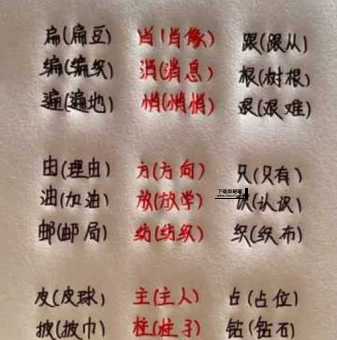 扁(扁豆) 肖(肖像) 跟(跟从)
编(编织) 消(消息) 根(树根)
遍(遍地) 悄(悄悄) 艰(艰难)
由(理由) 方(方向) 只(只有)
油(加油) 放(放学) 识(认识)
邮(邮局) 纺(纺织) 织(织布)
皮(皮球) 主(主人) 占(占位)
披(披巾) 柱(柱子) 钻(钻石)